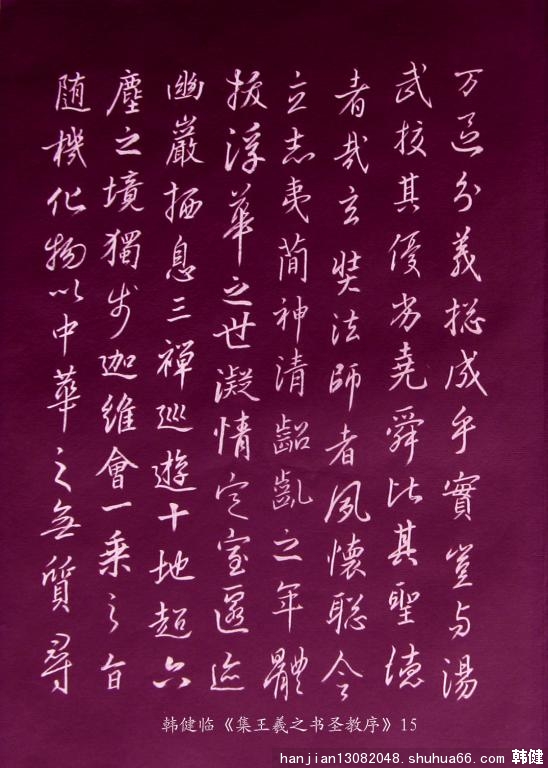 万區分義揔成乎實豈与湯
武挍其優劣堯舜比其聖德
者哉玄奘法師者夙懷聡令
立志夷簡神清齠齓之年體
拔浮華之世凝情定室匿迹
幽巖栖息三禪巡遊十地超六
塵之境獨步迦維會一乘之旨
随機化物以中華之無質尋
韩健临《集王羲之书圣教序》15
hanjian13082048.shuhua66.com 韩健